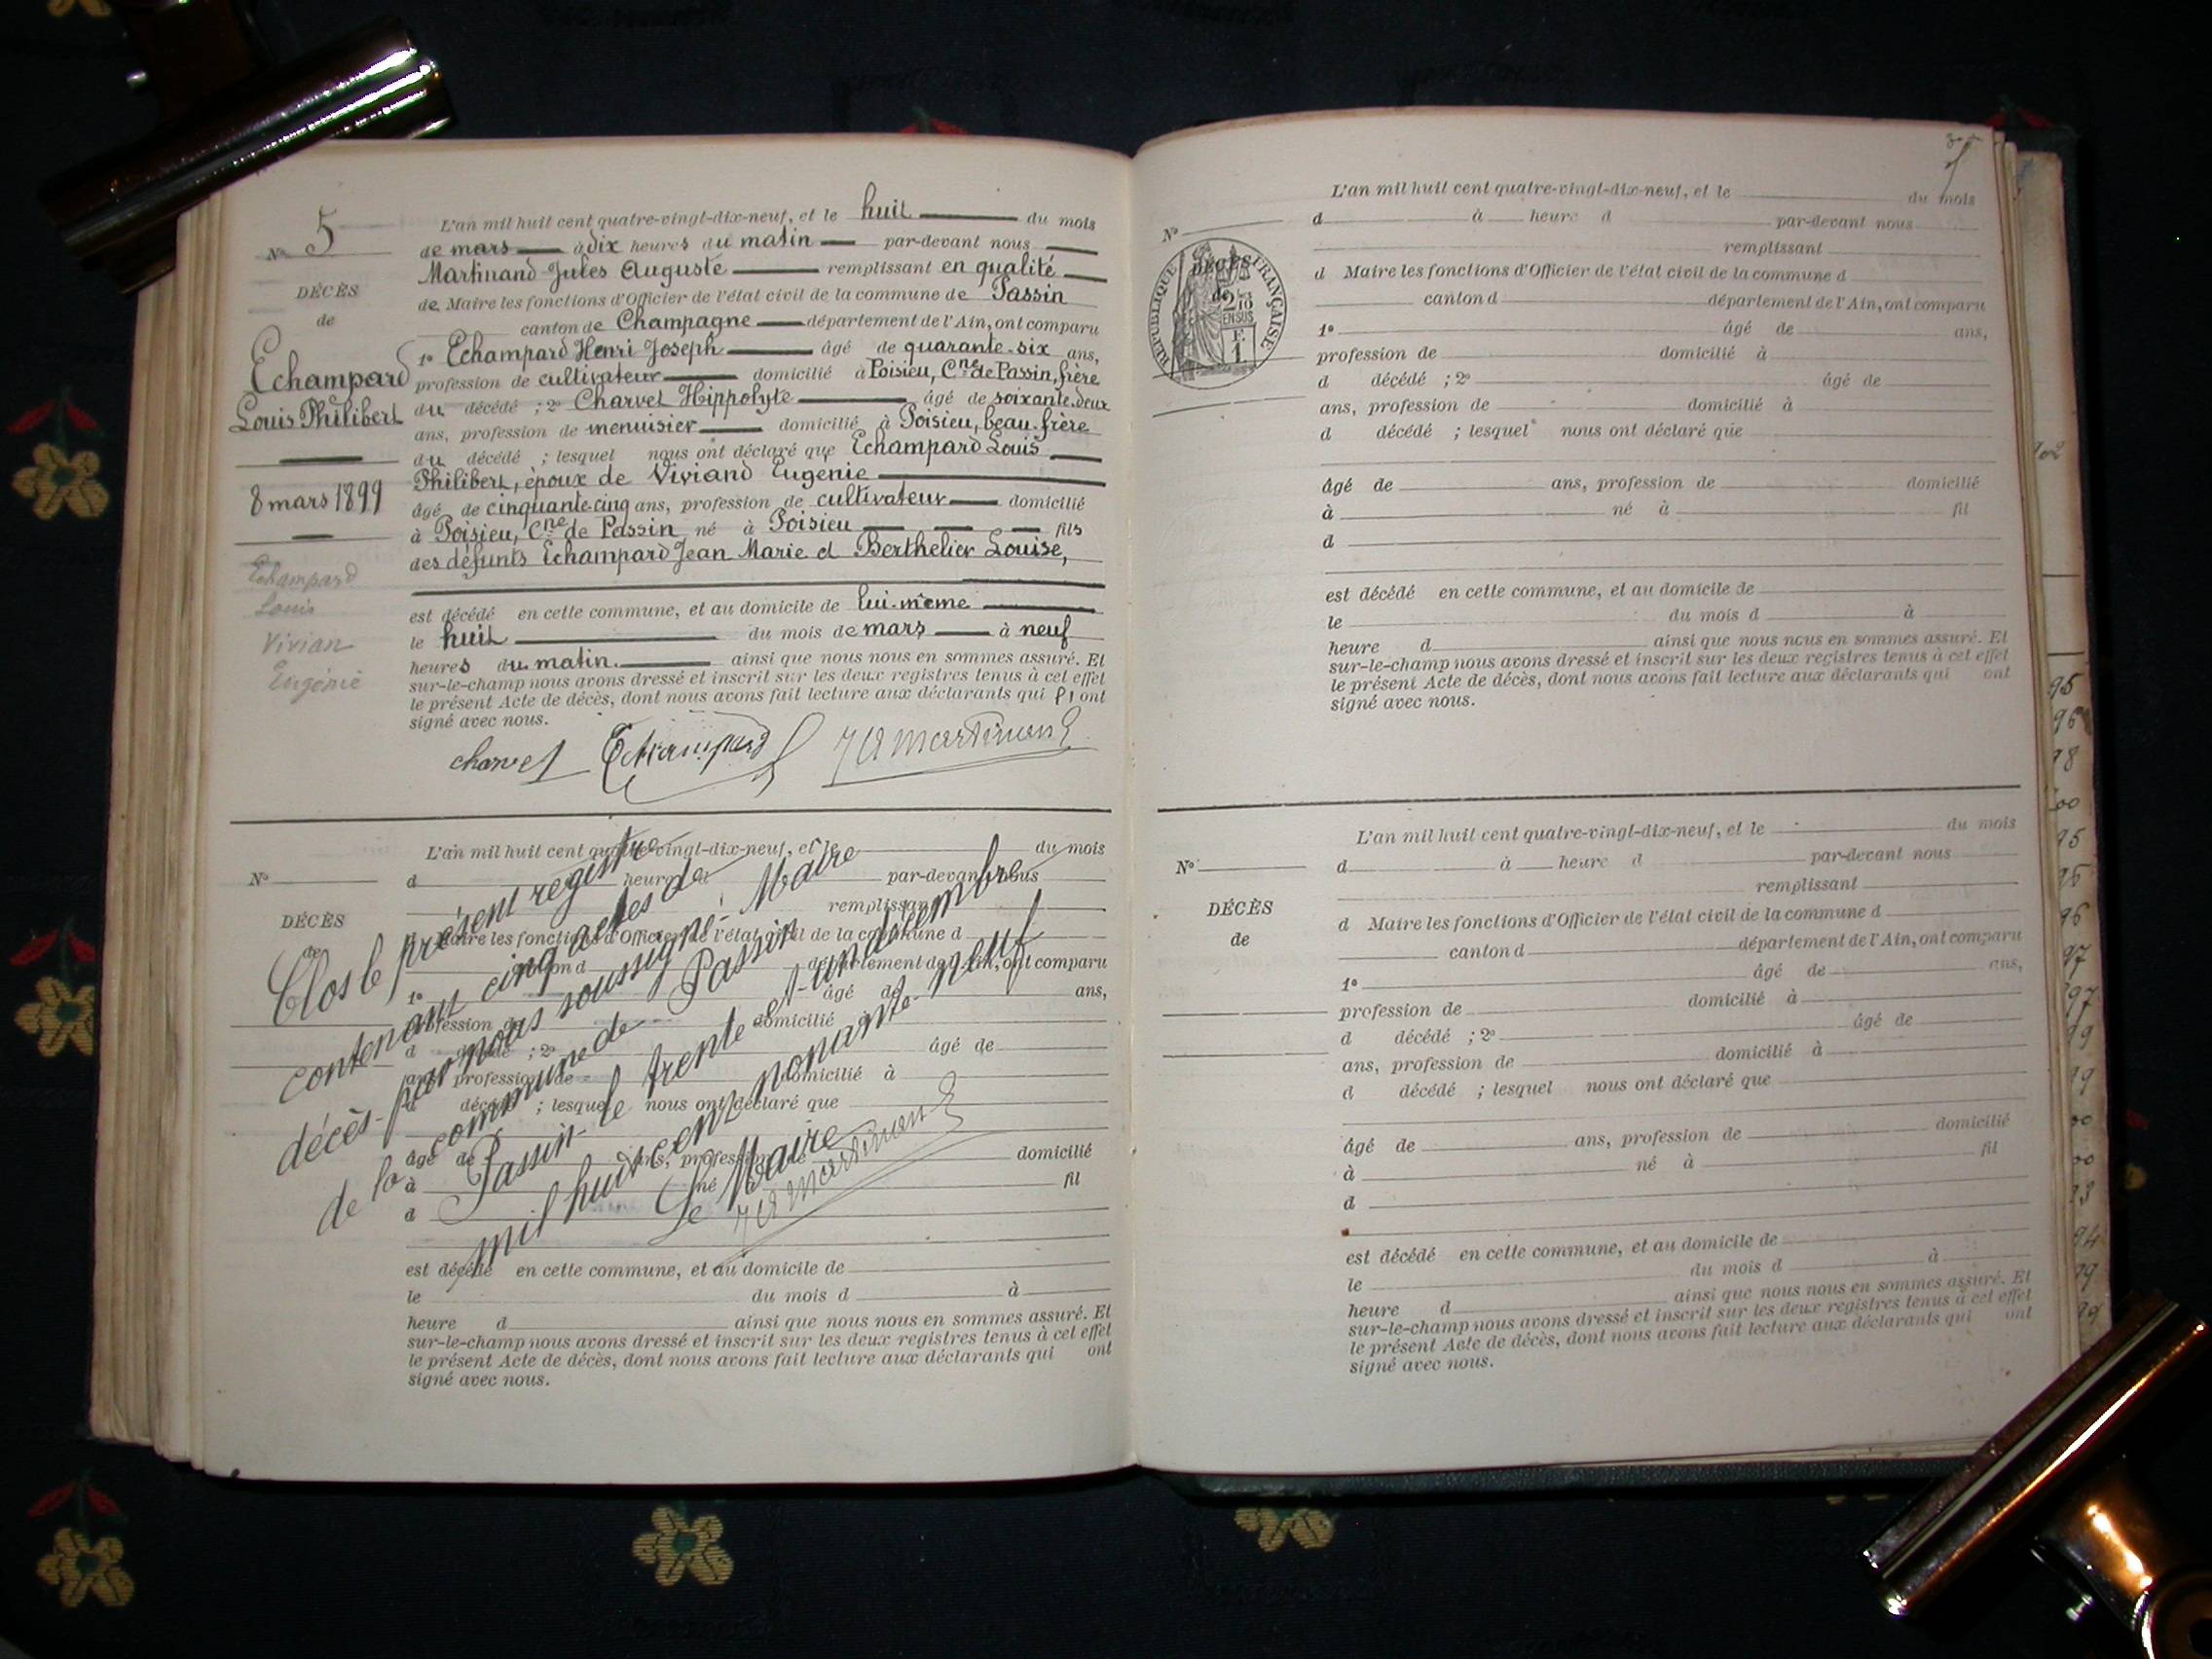 L'an mil huit cent quatre-vingt-dix-neuf, et le huit du mois
N° 5
de mars à dix heures du matin par-devant nous
Martinand Jules Auguste remplissant en qualité
DÉCÈS
de Maire les fonctions d'Officier de l'état civil de la commune de Passin
de
canton de Champagne département de l'Ain, ont comparu
Echampard
Louis Philibert
1° Echampard Henri Joseph âgé de quarante-six ans,
profession de cultivateur domicilié à Poisieu, Cne de Passin, frère
du décédé ; 2° Charvet Hippolyte âgé de soixante-deux
ans, profession de menuisier domicilié à Poisieu, beau-frère
du décédé ; lesquel nous ont déclaré que Echampard Louis
Philibert, époux de Viviand Eugénie
8 mars 1899
âgé de cinquante-cinq ans, profession de cultivateur domicilié
à Poisieu, Cne de Passin né à Poisieu fils
des défunts Echampard Jean Marie et Berthelier Louise,
Echampard
Louis
Vivian
Eugénie
est décédé en cette commune, et au domicile de lui-même
le huit du mois de mars à neuf
heures du matin. ainsi que nous nous en sommes assuré. Et
sur-le-champ nous avons dressé et inscrit sur les deux registres tenus à cet effet
le présent Acte de décès, dont nous avons fait lecture aux déclarants qui ont
signé avec nous.
charvet Echampard JA Martinand
L'an mil huit cent quatre-vingt-dix-neuf, et le du mois
N°
d heure d par-devant nous
remplissant
DÉCÈS
de
d Maire les fonctions d'Officier de l'état civil de la commune d
canton d département de l'Ain, ont comparu
1° âgé de ans,
profession de domicilié à
d décédé ; 2° âgé de
ans, profession de domicilié à
d décédé ; lesquel nous ont déclaré que
âgé de ans, profession de domicilié
à né à fil
d
est décédé en cette commune, et au domicile de
le du mois d à
heure d ainsi que nous nous en sommes assuré. Et
sur-le-champ nous avons dressé et inscrit sur les deux registres tenus à cet effet
le présent Acte de décès, dont nous avons fait lecture aux déclarants qui ont
signé avec nous.
Clos le présent registre
contenant cinq actes de
décès par nous soussigné Maire
de la commune de Passin
Passin le trente et un décembre
mil huit cent nonante-neuf
Le Maire
JA Martinand
L'an mil huit cent quatre-vingt-dix-neuf, et le du mois
N°
d à heure d par-devant nous
remplissant
RÉPUBLIQUE FRANÇAISE
DÉCÈS
de
2/10
EN SUS
F.
1.
d Maire les fonctions d'Officier de l'état civil de la commune d
canton d département de l'Ain, ont comparu
1° âgé de ans,
profession de domicilié à
d décédé ; 2° âgé de
ans, profession de domicilié à
d décédé ; lesquel nous ont déclaré que
âgé de ans, profession de domicilié
à né à fil
d
est décédé en cette commune, et au domicile de
le du mois d à
heure d ainsi que nous nous en sommes assuré. Et
sur-le-champ nous avons dressé et inscrit sur les deux registres tenus à cet effet
le présent Acte de décès, dont nous avons fait lecture aux déclarants qui ont
signé avec nous.
L'an mil huit cent quatre-vingt-dix-neuf, et le du mois
N°
d à heure d par-devant nous
remplissant
DÉCÈS
de
d Maire les fonctions d'Officier de l'état civil de la commune d
canton d département de l'Ain, ont comparu
1° âgé de ans,
profession de domicilié à
d décédé ; 2° âgé de
ans, profession de domicilié à
d décédé ; lesquel nous ont déclaré que
âgé de ans, profession de domicilié
à né à fil
d
est décédé en cette commune, et au domicile de
le du mois d à
heure d ainsi que nous nous en sommes assuré. Et
sur-le-champ nous avons dressé et inscrit sur les deux registres tenus à cet effet
le présent Acte de décès, dont nous avons fait lecture aux déclarants qui ont
signé avec nous.